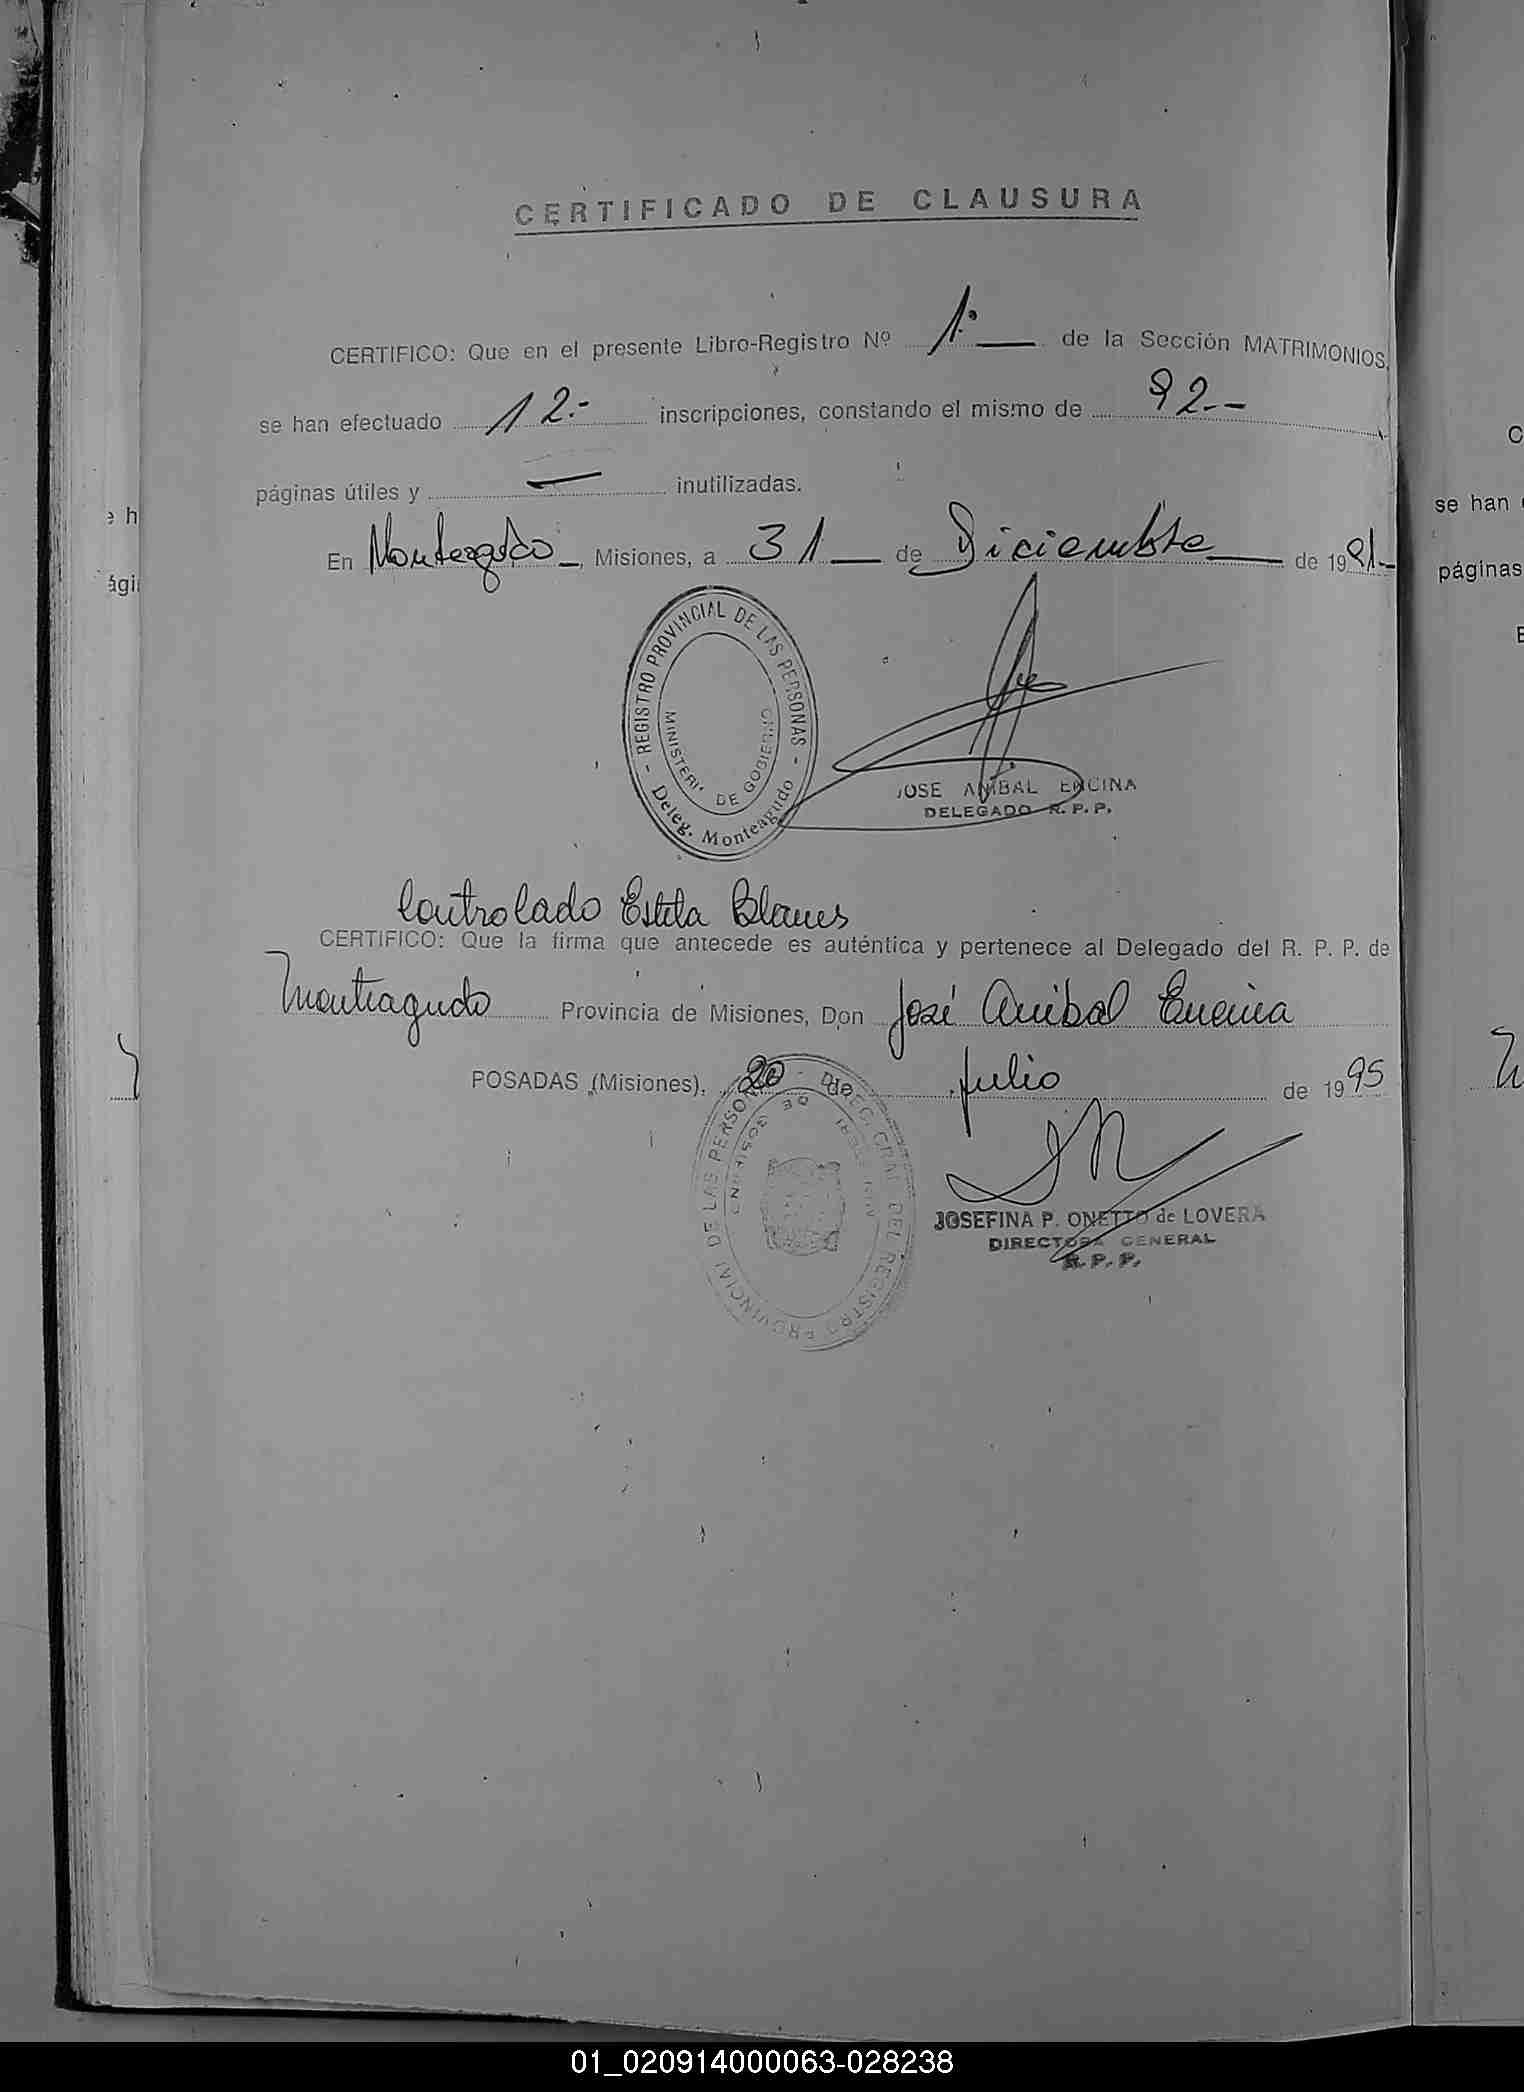 CERTIFICADO DE CLAUSURA
CERTIFICO: Que en el presente Libro-Registro Nº 1º de la Sección MATRIMONIOS,
se han efectuado 12.- inscripciones, constando el mismo de 92--
páginas útiles y — inutilizadas.
En Monteagudo, Misiones, a 31 de Diciembre de 1991-
- REGISTRO PROVINCIAL DE LAS PERSONAS -
MINISTERIO DE GOBIERNO
Deleg. Monteagudo
JOSE ANIBAL ENCINA
DELEGADO R. P. P.
Controlado Estela Blanes
CERTIFICO: Que la firma que antecede es auténtica y pertenece al Delegado del R. P. P. de
Monteagudo Provincia de Misiones, Don José Anibal Encina
POSADAS (Misiones), 20 de julio de 1995
DIREC. GRAL. DEL REGISTRO PROVINCIAL DE LAS PERSONAS
JOSEFINA P. ONETTO de LOVERA
DIRECTORA GENERAL
R. P. P.
se han
páginas
01_020914000063-028238